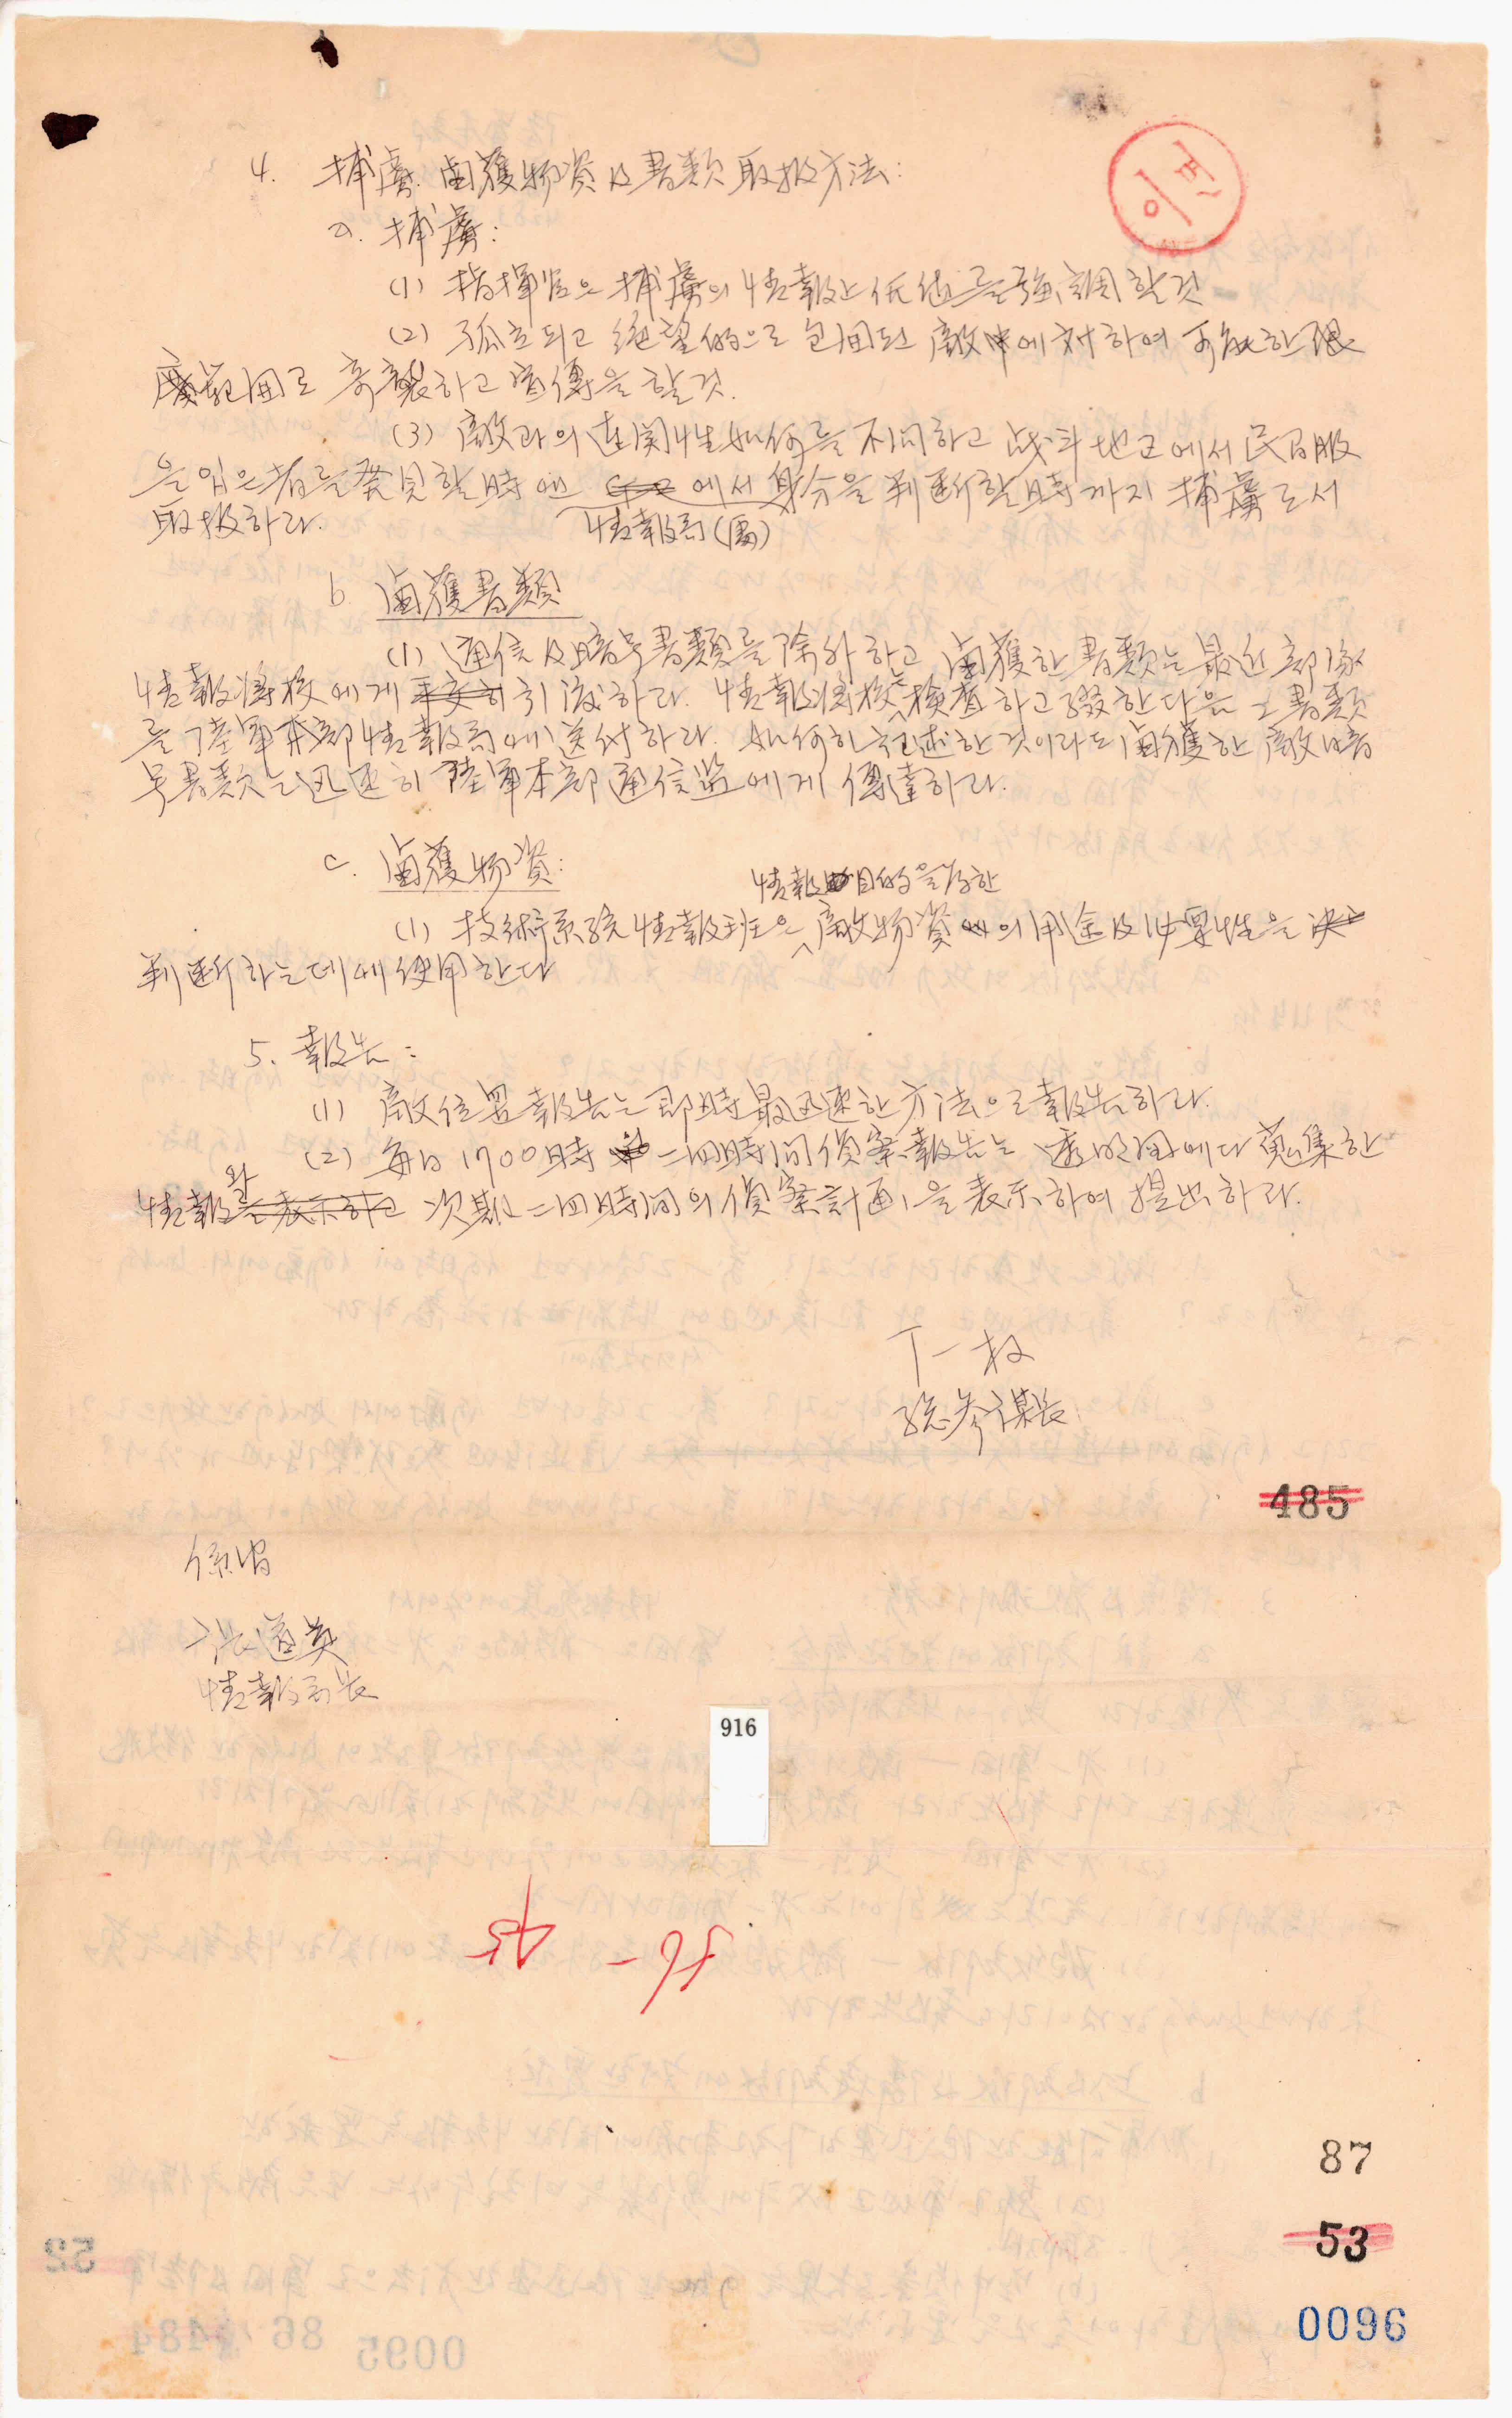 이면
4. 捕虜. 鹵獲物資 及 書類 取扱方法:
a. 捕虜:
(1) 指揮官은 捕虜의 情報上 価値를 強調할것
(2) 孤立되고 絶望的으로 包囲된 敵에 対하여 可能한 限
廣範囲로 奇襲하고 宣傳을 할것.
(3) 敵과의 連関性 如何를 不問하고 战斗地区에서 民間服
을 입은 者를 発見할 時엔 에서 身分을 判断할 時까지 捕虜로서
取扱하라.
情報局(國)
b. 鹵獲書類
(1) 通信 及 暗号書類를 除外하고 鹵獲한 書類는 最近 部隊
情報將校에게 引渡하라. 情報將校는 檢査하고 綴한다음 그 書類
를 陸軍本部 情報局에 送付하라. 如何히 記述한 것이라도 鹵獲한 敵 暗
号書類는 迅速히 陸軍本部 通信監에게 傳達하라.
c. 鹵獲物資:
情報 目的을 為한
(1) 技術系統 情報班은 敵物資의 用途 及 必要性을
判断하는데에 使用한다
5. 報告:
(1) 敵位置報告는 即時 最迅速한 方法으로 報告하라.
(2) 每日 1700時 二四時間 偵察報告는 透明図에다 蒐集한
와
情報 를 表示하고 次期 二四時間의 偵察計画을 表示하여 提出하라.
丁一权
総参謀長
485
係官
張道英
情報局長
916
56- 45
87
53
0096